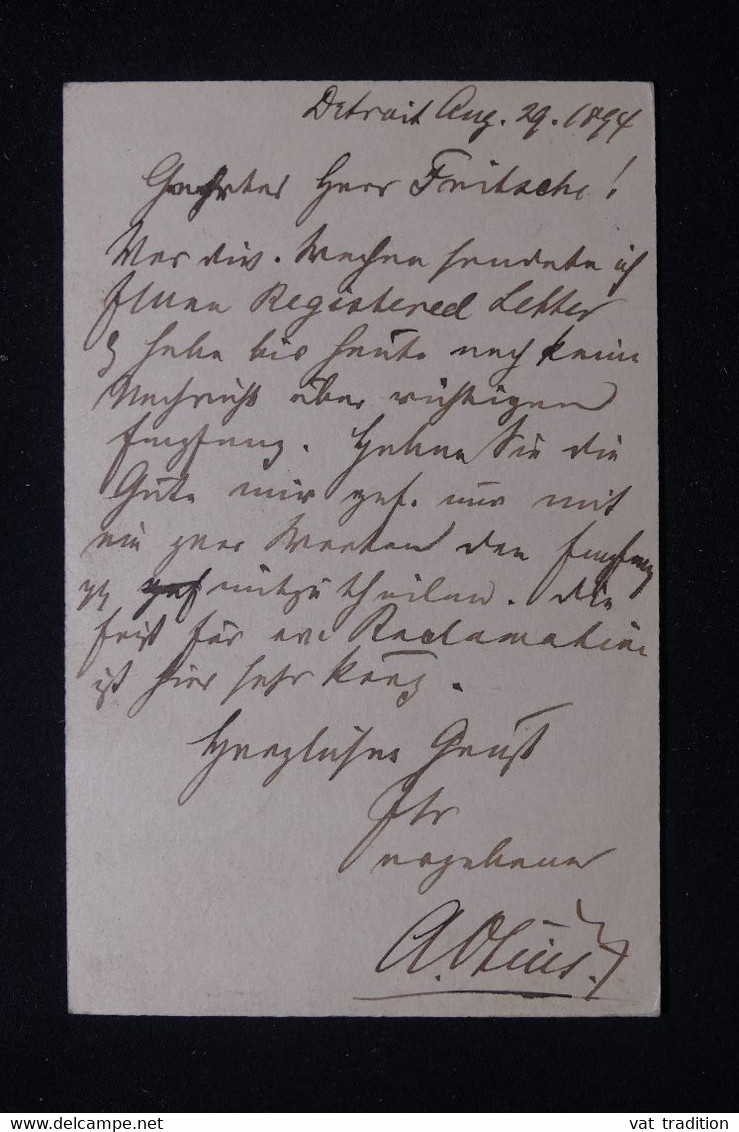 Detroit Aug. 29. 1894
Geehrter Herr Fritsche!
Vor div. Wochen sendete ich
Ihnen Registered Letter
& habe bis heute noch keine
Nachricht über richtigen
Empfang. Haben Sie die
Güte mir gef. nur mit
ein paar Worten den Empfang
mitzutheilen. Die
Frist für eve Reclamation
ist hier sehr kurz.
Herzlichen Gruß
Ihr
ergebener
A.
vat tradition
www.delcampe.net